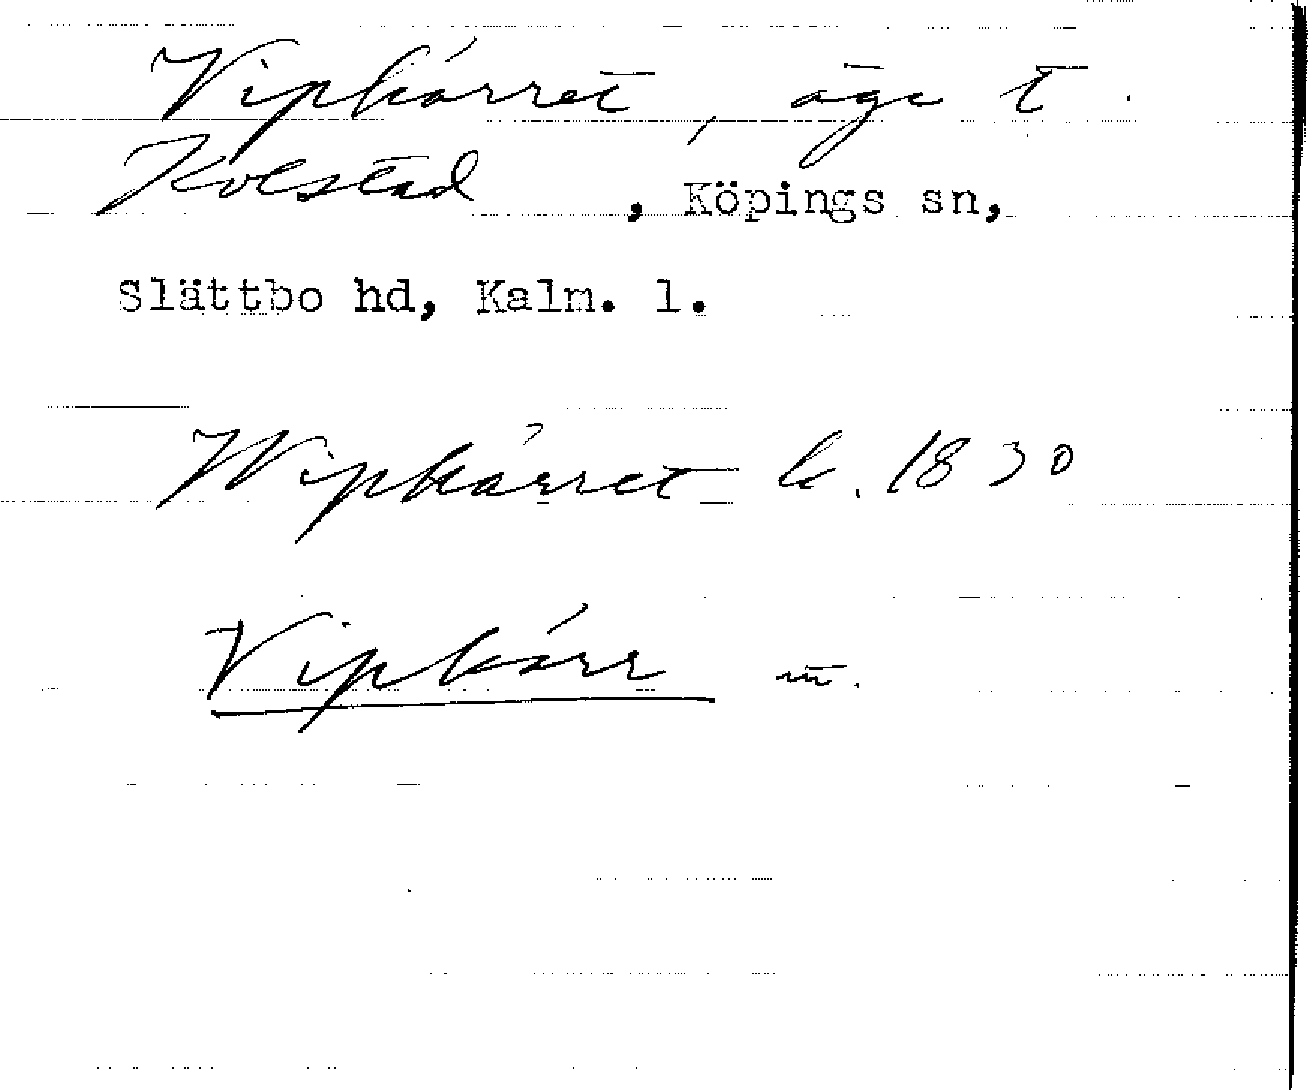 Vipkärret, äga t.
Kolstad, Köpings sn,
Slättbo hd, Kalm. l.
Wipkärret k. 1830
Vipkärr n.